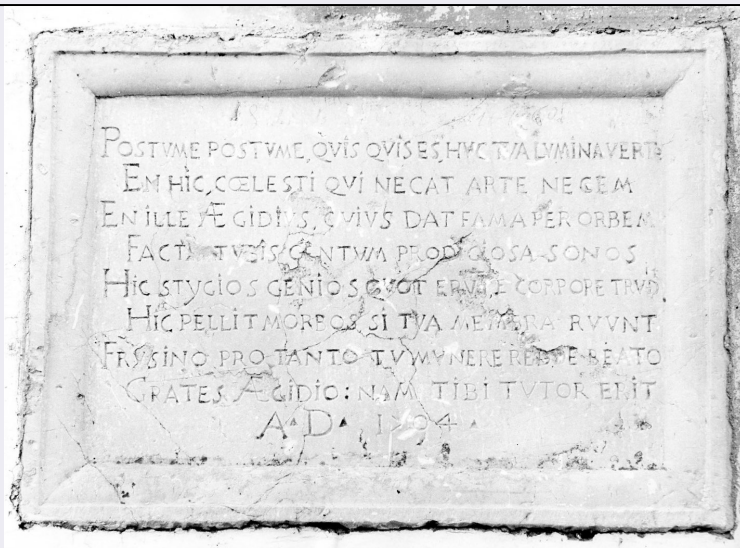 POSTVME POSTVME, QVIS QVIS ES, HVC TVA LVMINA VERTE
EN HIC, CŒLESTI QVI NECAT ARTE NECEM
EN ILLE ÆGIDIVS, CVIVS DAT FAMA PER ORBEM
FACTA TVBIS CENTVM PRODIGIOSA SONOS
HIC STYGIOS GENIOS QVOT E CORPORE TRVD
HIC PELLIT MORBOS, SI TVA MEMBRA RVVNT
FRVSINO PRO TANTO TV MVNERE REDDE BEATO
GRATES ÆGIDIO: NAM TIBI TVTOR ERIT
A. D.